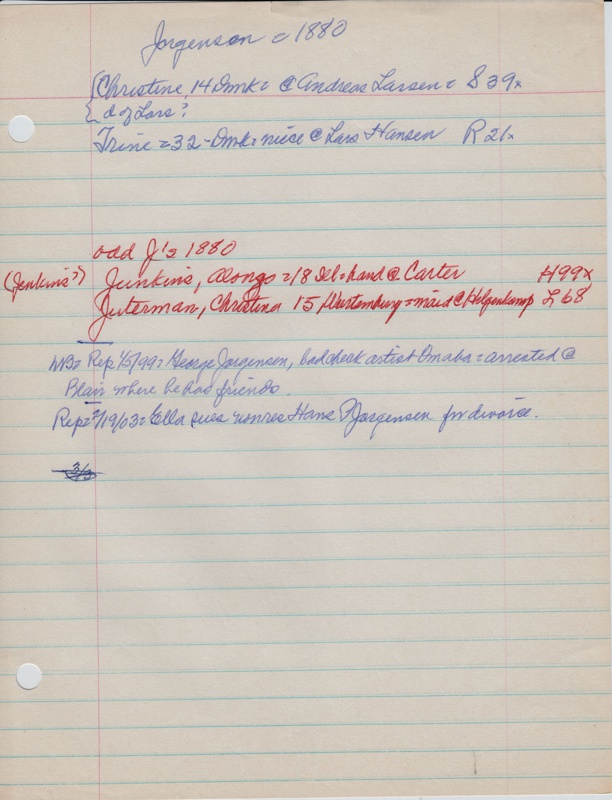 Jorgenson c 1880
{Christine, 14 Dmk = @ Andreas Larsen = S 39x
{ d of Lars?
Trine = 32 - Dmk = niece @ Lars Hansen R 21x
odd J's 1880
(Jenkins?) Junkins, Alongo = 18 Del = hand @ Carter H99x
Juterman, Christina 15 Wurtemburg = maid @ Hilgenkamp L 68
WB = Rep 1/5/99 = George Jorgensen, bad check artist Omaha = arrested @
Blair where he had friends.
Rep = 2/19/03 = Ella sues nonres Hans Jorgensen for divorce.